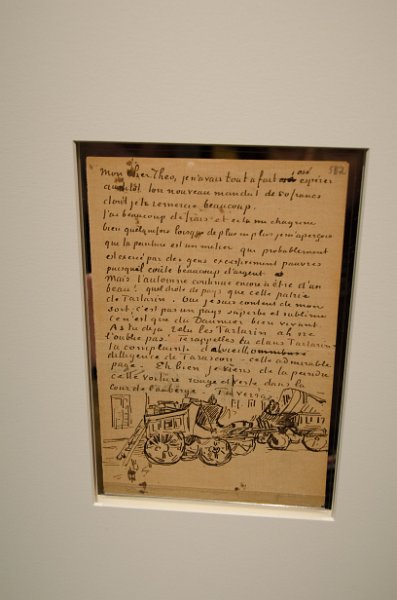 Mon cher Theo, je n'avais tout à fait osé espérer 552
aussitôt ton nouveau mandat de 50 francs
dont je te remercie beaucoup.
J'ai beaucoup de frais et cela me chagrine
bien quelquefois lorsque de plus en plus je m'aperçois
que la peinture est un métier qui probablement
est exercé par des gens excessivement pauvres
puisqu'il coûte beaucoup d'argent
Mais l'automne continue encore à être d'un
beau! quel drôle de pays que cette patrie
de Tartarin. Oui je suis content de mon
sort, c'est pas un pays superbe et sublime
ce n'est que du Daumier bien vivant.
As tu déjà relu les Tartarin ah ne
l'oublie pas! Te rappelles tu dans Tartarin
la complainte de la vieille
diligence de Tarascon - cette admirable
page. Eh bien je viens de la peindre
cette voiture rouge et verte dans la
cour de l'auberge